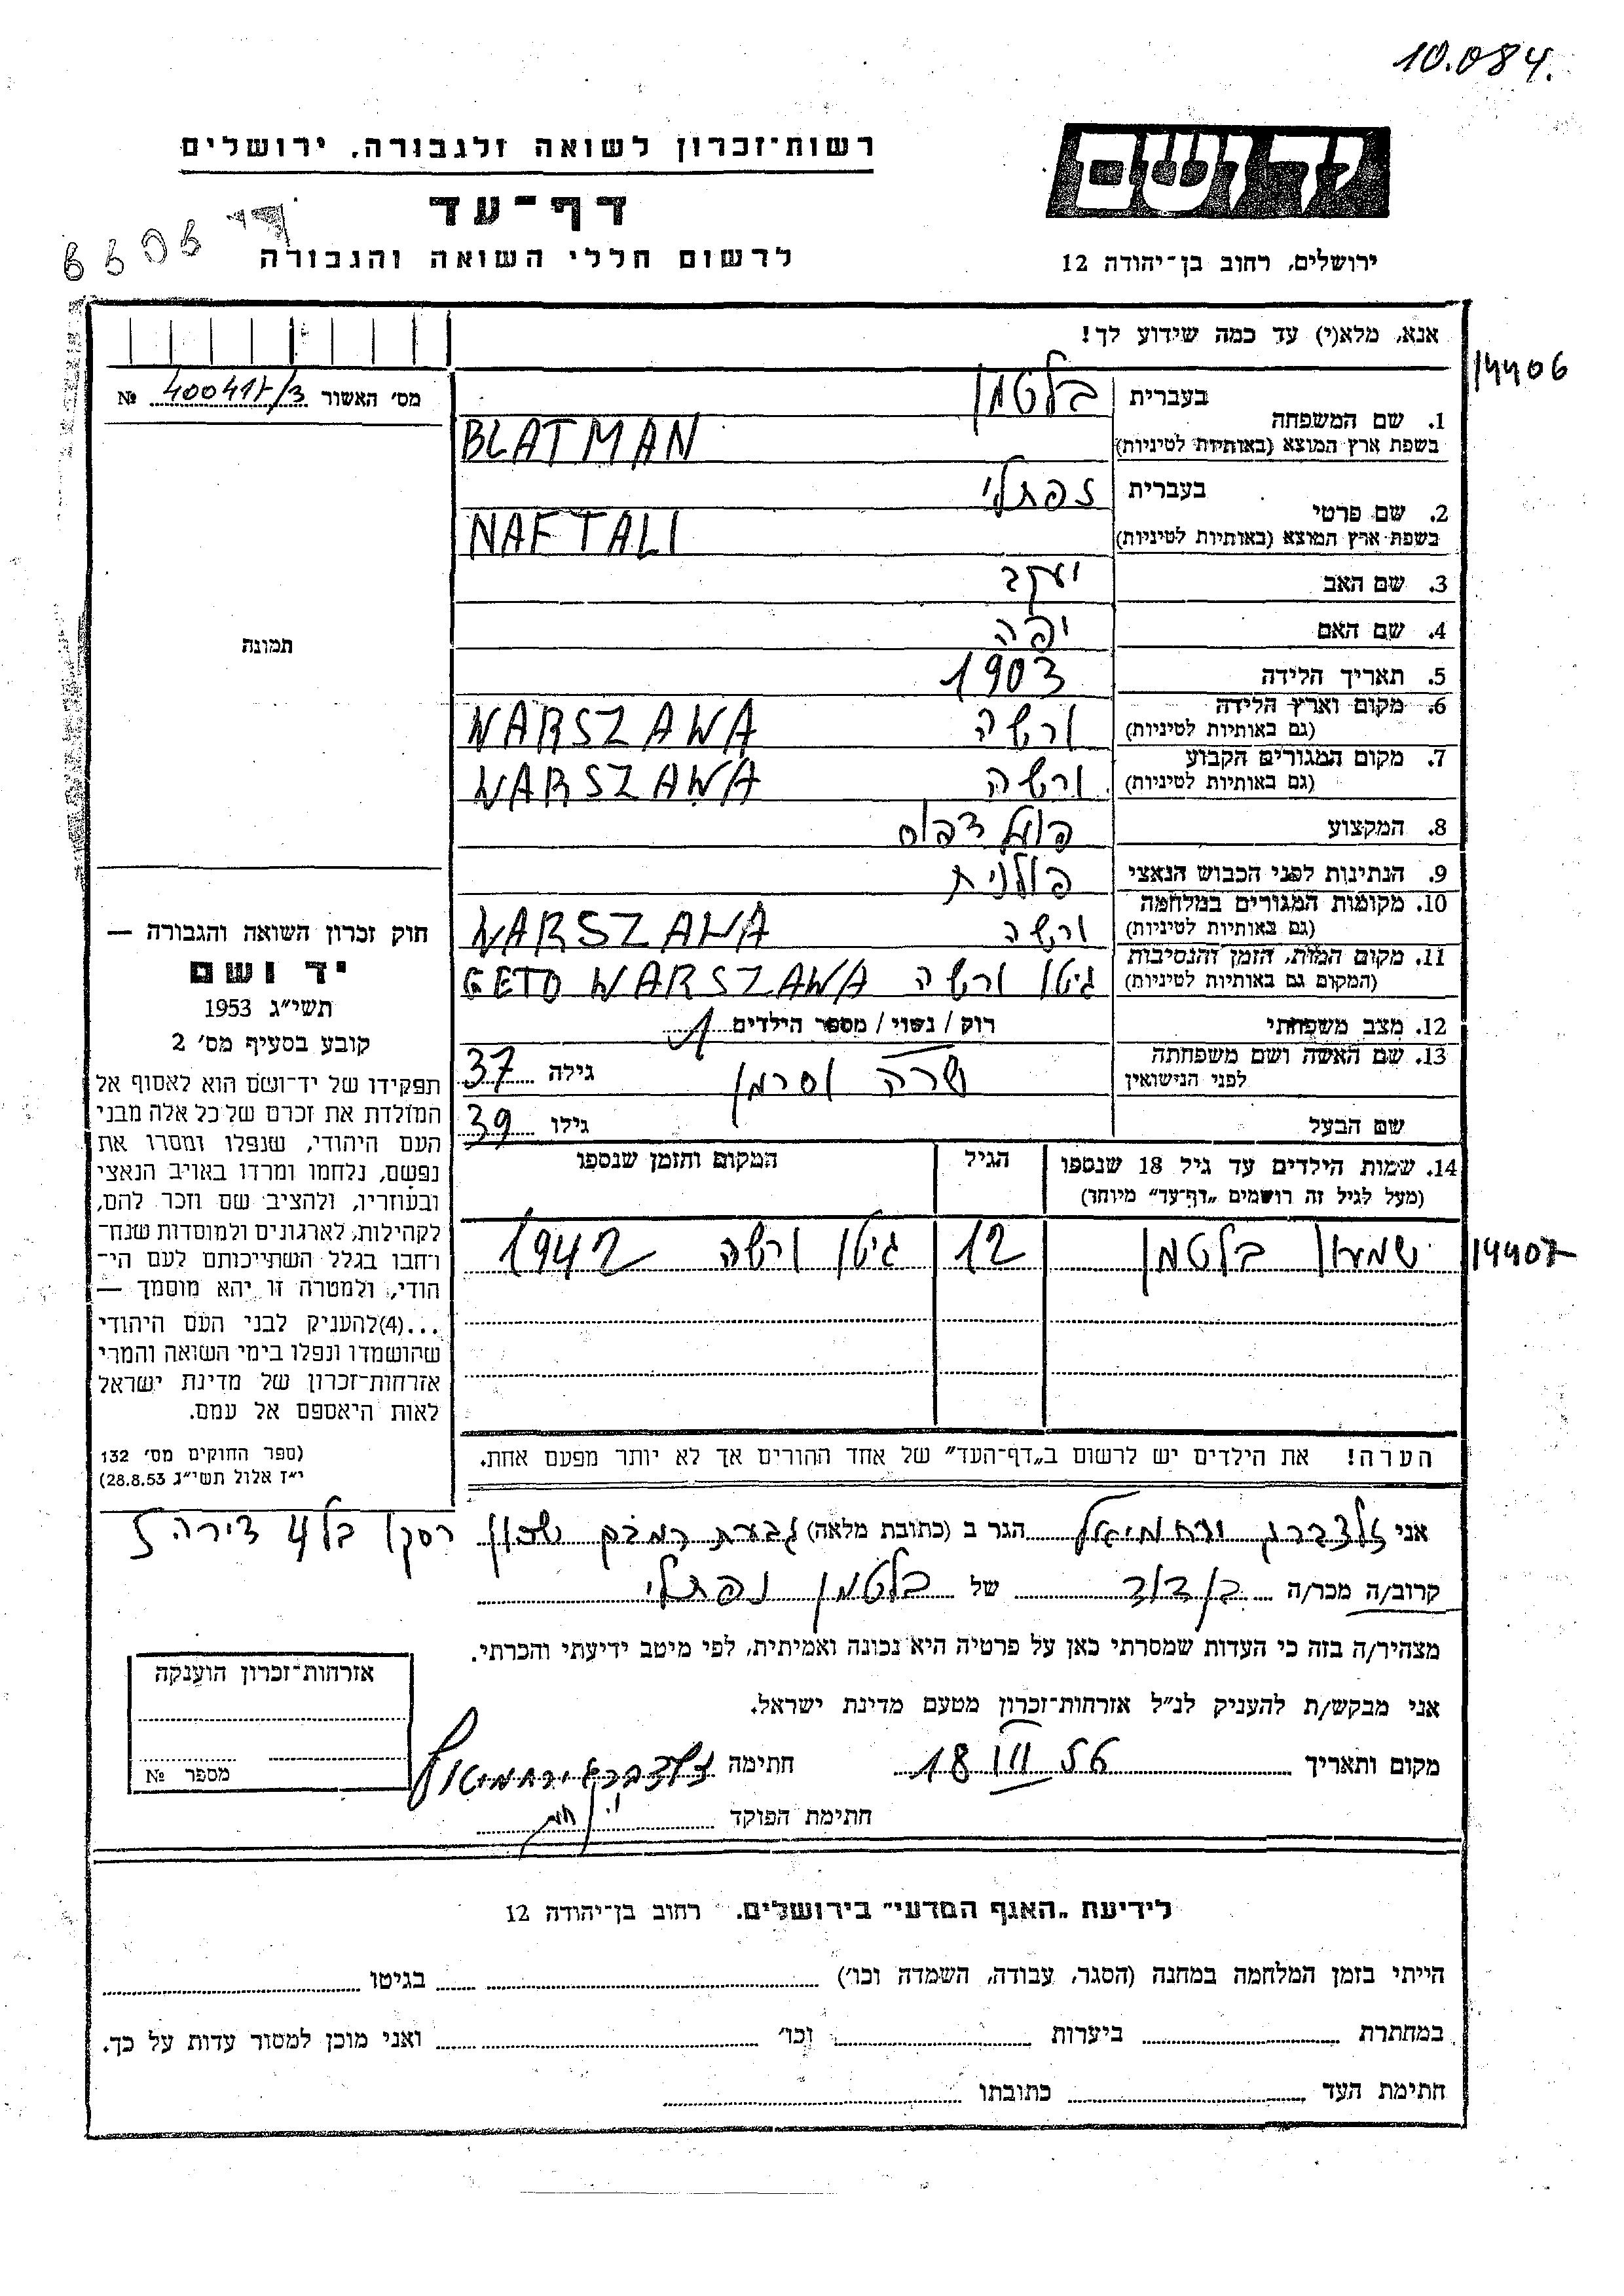 10.084.
רשות־זכרון לשואה ולגבורה, ירושלים
יד ושם
דף־עד
לרשום חללי השואה והגבורה
ירושלים, רחוב בן־יהודה 12
אנא, מלא(י) עד כמה שידוע לך!
14406
מס' האשור № 400417/3
1. שם המשפחה
בעברית בלטמן
בשפת ארץ המוצא (באותיות לטיניות) BLATMAN
2. שם פרטי
בעברית נפתלי
בשפת ארץ המוצא (באותיות לטיניות) NAFTALI
3. שם האב יעקב
4. שם האם יפה
תמונה
5. תאריך הלידה 1903
6. מקום וארץ הלידה (גם באותיות לטיניות) ורשה WARSZAWA
7. מקום המגורים הקבוע (גם באותיות לטיניות) ורשה WARSZAWA
8. המקצוע פועל דפוס
9. הנתינות לפני הכבוש הנאצי פולנית
10. מקומות המגורים במלחמה (גם באותיות לטיניות) ורשה WARSZAWA
11. מקום המות, הזמן והנסיבות (המקום גם באותיות לטיניות) גיטו ורשה GETO WARSZAWA
12. מצב משפחתי רוק / נשוי / מספר הילדים 1
13. שם האשה ושם משפחתה לפני הנישואין שרה וסרמן גילה 37
שם הבעל גילו 39
14. שמות הילדים עד גיל 18 שנספו
(מעל לגיל זה רושמים „דף־עד" מיוחד)
הגיל
המקום והזמן שנספו
שמעון בלטמן 12 גיטו ורשה 1942
14407
הערה! את הילדים יש לרשום ב„דף־העד" של אחד ההורים אך לא יותר מפעם אחת.
חוק זכרון השואה והגבורה —
יד ושם
תשי"ג 1953
קובע בסעיף מס' 2
תפקידו של יד־ושם הוא לאסוף אל
המולדת את זכרם של כל אלה מבני
העם היהודי, שנפלו ומסרו את
נפשם, נלחמו ומרדו באויב הנאצי
ובעוזריו, ולהציב שם וזכר להם,
לקהילות, לארגונים ולמוסדות שנח־
רחבו בגלל השתייכותם לעם הי־
הודי, ולמטרה זו יהא מוסמך —
...(4)להעניק לבני העם היהודי
שהושמדו ונפלו בימי השואה והמרי
אזרחות־זכרון של מדינת ישראל
לאות היאספם אל עמם.
(ספר החוקים מס' 132
י"ז אלול תשי"ג 28.8.53)
אני זלצברג ירחמיאל הגר ב (כתובת מלאה) גבעת רמבם שכון רסקו דירה 7
קרוב/ה מכר/ה בן דוד של בלטמן נפתלי
מצהיר/ה בזה כי העדות שמסרתי כאן על פרטיה היא נכונה ואמיתית, לפי מיטב ידיעתי והכרתי.
אני מבקש/ת להעניק לנ"ל אזרחות־זכרון מטעם מדינת ישראל.
מקום ותאריך 18 III 56 חתימה זלצברג ירחמיאל
חתימת הפוקד
אזרחות־זכרון הוענקה
מספר №
לידיעת „האגף המדעי" בירושלים. רחוב בן־יהודה 12
הייתי בזמן המלחמה במחנה (הסגר, עבודה, השמדה וכו') בגיטו
במחתרת ביערות וכו' ואני מוכן למסור עדות על כך.
חתימת העד כתובתו